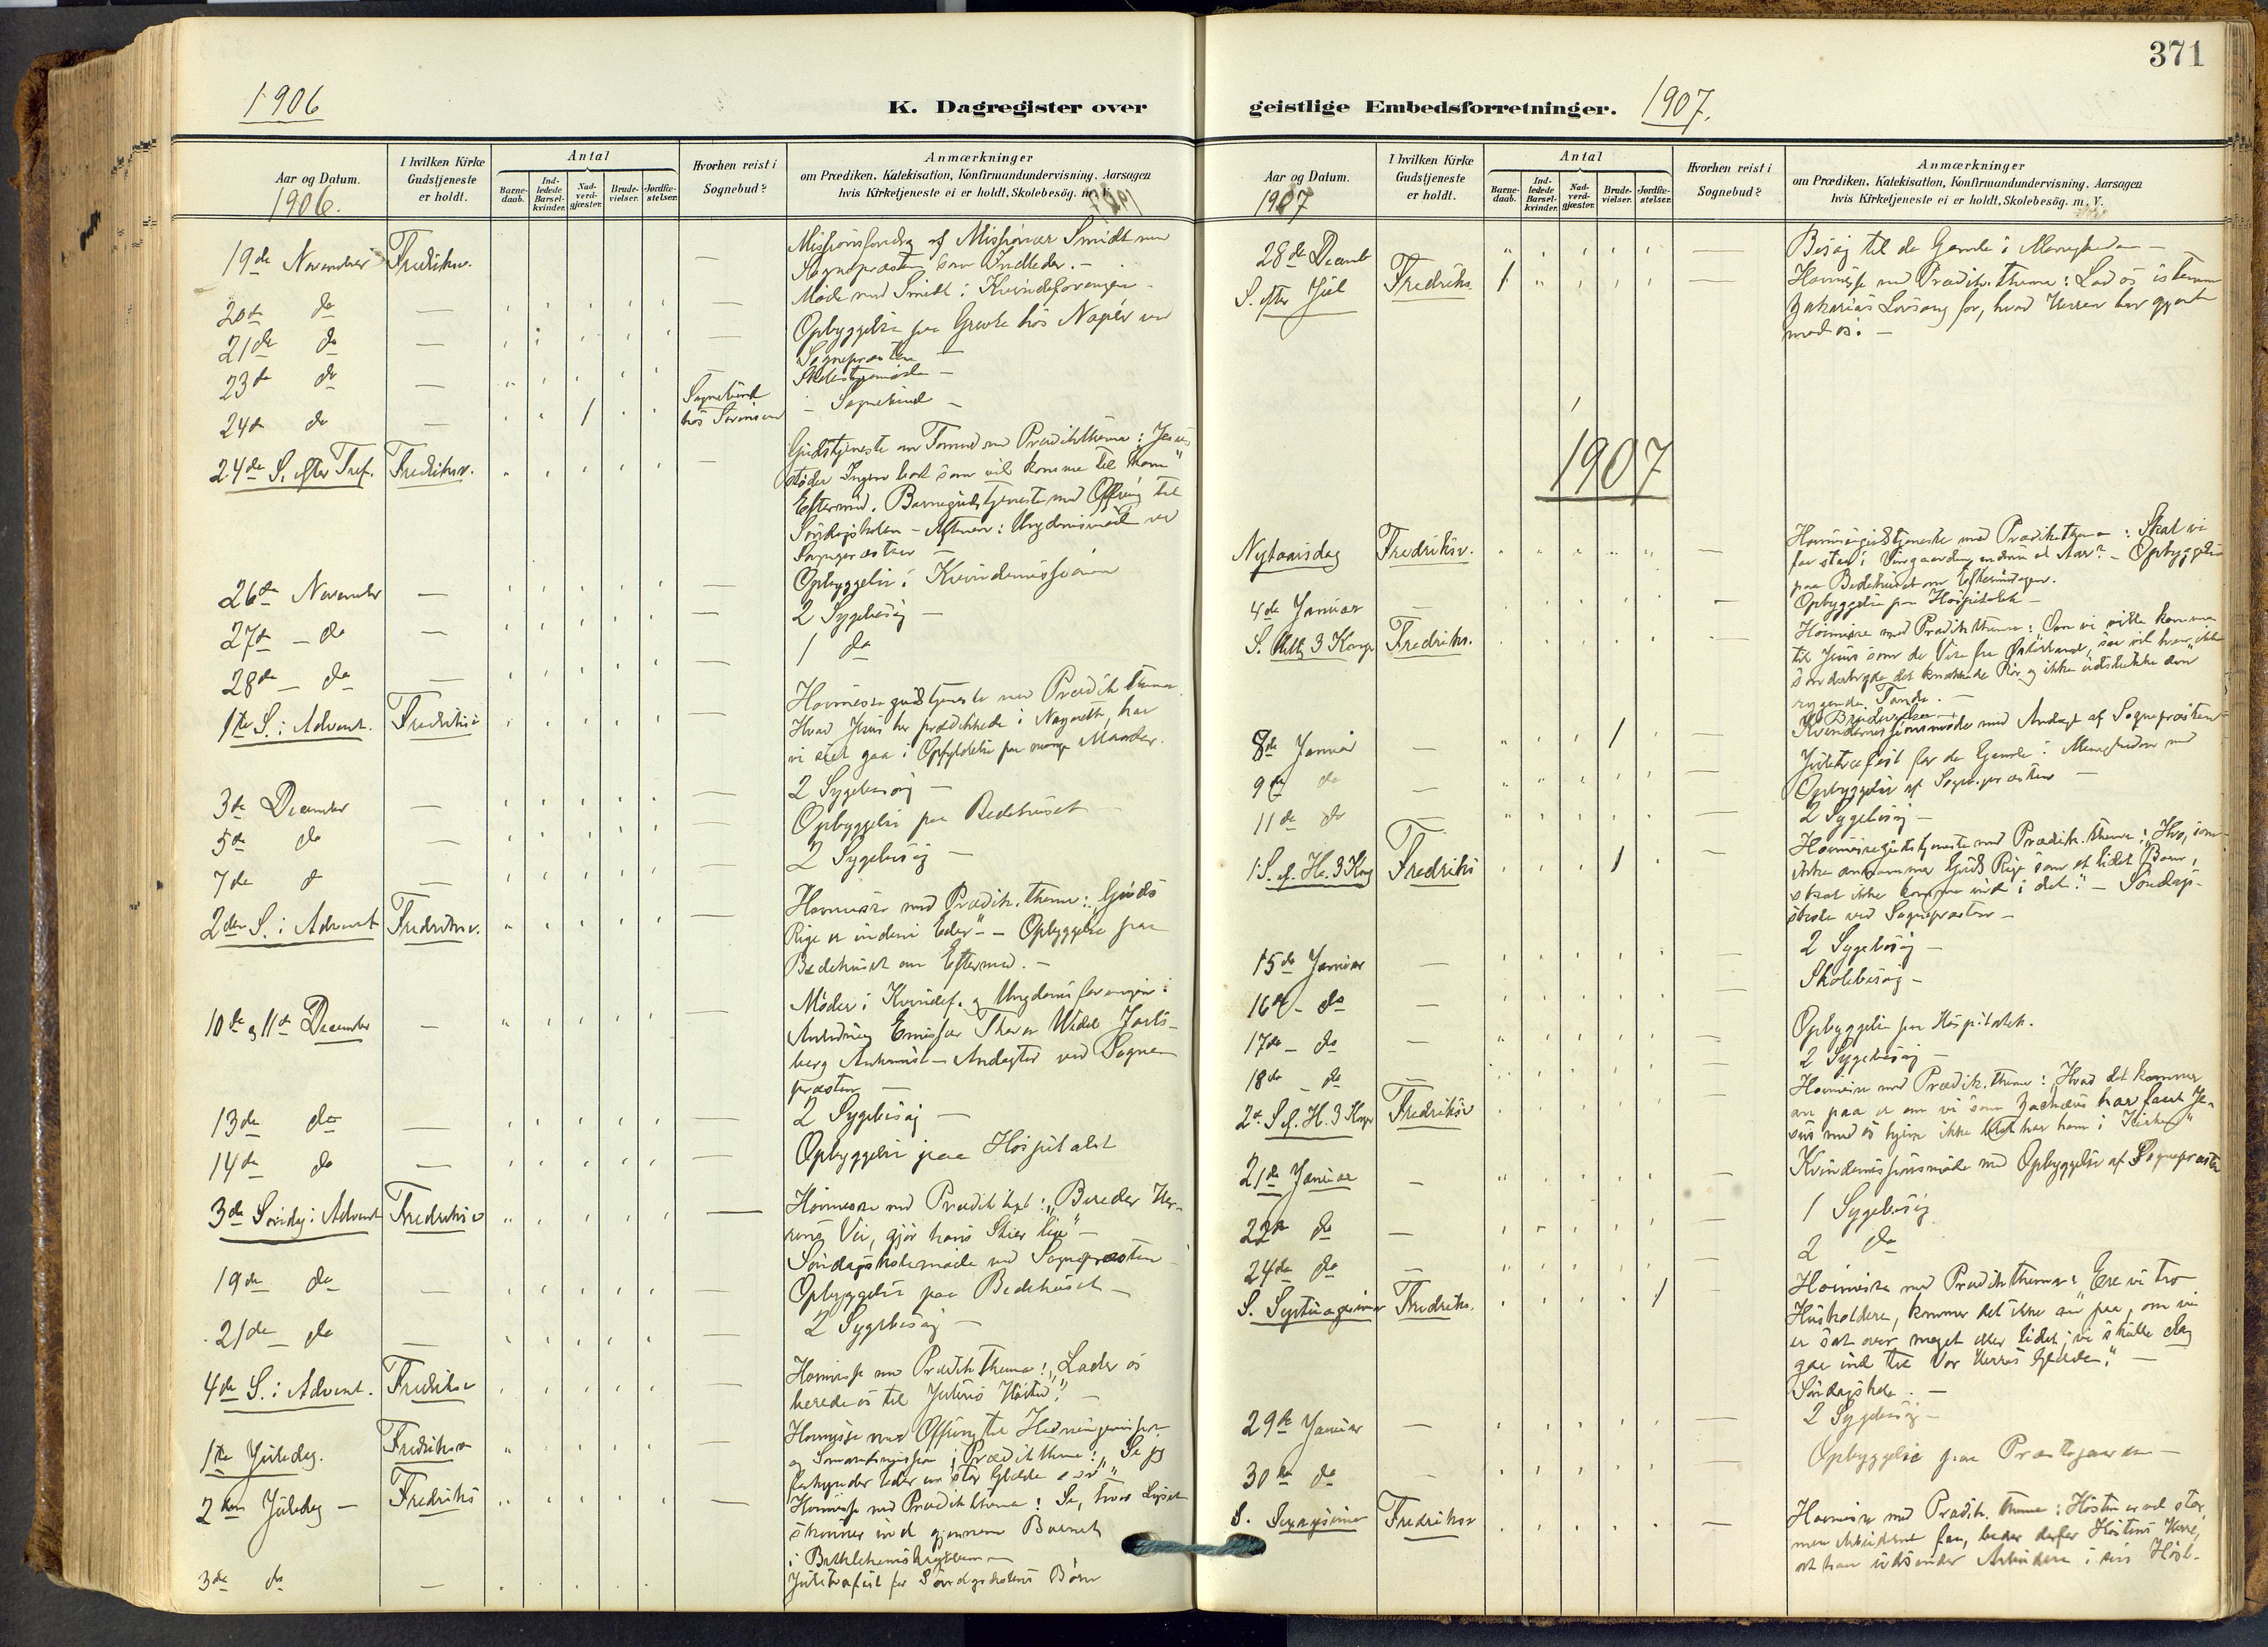 371
1906
K. Dagregister over
geistlige Embedsforretninger.
1907.
Aar og Datum.
1906.
I hvilken Kirke Gudstjeneste er holdt.
Antal
Barnedaab.
Indledede Barselkvinder.
Nadverdgjæster.
Brudevielser.
Jordfæstelser.
Hvorhen reist i Sognebud?
Anmærkninger
om Prædiken, Katekisation, Konfirmandundervisning, Aarsagen
hvis Kirketjeneste ei er holdt, Skolebesög. m. V.
19de November Fredriksv. — Missionsforedrag af Missionær Smidt med
Sognepræsten som Indleder. —
20de do — — Møde med Smidt i Kvindeforeningen —
21de do — — Opbyggelse paa hos Napér ved
Sognepræsten —
23de do —
24de do — 1 Sognebud
hos Sørensen — Sognebud —
24de S. efter Tref. Fredriksv. — Gudstjeneste om Formd med Prædikthema: Jesus
støder Ingen bort som vil komme til ham"
Eftermd. Barnegudstjeneste med Offring til
Søndagsskolen — Aftenen: Ungdomsmøde ved
Sognepræsten —
26de November — — Opbyggelse i Kvindemissionen
27de — do — — 2 Sygebesøg —
28de — do — — 1 do
1ste S. i Advent. Fredriksv — Høimessegudstjeneste med Prædikthema
Hvad Jesus her prædikede i Nazareth, har
vi seet gaa i Opfyldelse paa mange Maader.
3de December — — 2 Sygebesøg —
5de do — — Opbyggelse paa Bedehuset
7de d — — 2 Sygebesøg —
2den S. i Advent Fredriksv. — Høimesse med Prædik. thema: „Guds
Rige er indeni Eder" — Opbyggelse paa
Bedehuset om Eftermd. —
10de og 11te December — — Møder i Kvindef. og Ungdomsforeningen i
Anledning Emissær Thorer Wedel Jarls-
berg Ankomst — Andagter ved Sogne-
præsten —
13de do — — 2 Sygebesøg —
14de do — — Opbyggelse paa Hospitalet
3de Søndag i Advent Fredriksv — Høimesse med Prædiktext: „Bereder Her-
rens Vei, gjør hans Stier lige" —
Søndagsskolemøde ved Sognepræsten
19de do — — Opbyggelse paa Bedehuset —
21de do — — 2 Sygebesøg —
4de S. i Advent. Fredriksv — Høimesse med Prædikthema: „Lader os
berede os til Julens Høitid". —
1ste Juledag. Fredriksv — Høimesse med Offring til Hedningemission
og Sømandsmission; Prædikthema: „Se jeg
forkynder Eder en stor Glæde
2den Juledag — Fredriks — Høimesse med Prædikthema: Se, hvor Lyset
skinner ind gjennem Barnet
i Bethlehemskrybben —
3de do — Juletræfest for Søndagsskolens Børn
Aar og Datum.
1907
I hvilken Kirke Gudstjeneste er holdt.
Antal
Barnedaab.
Indledede Barselkvinder.
Nadverdgjæster.
Brudevielser.
Jordfæstelser.
Hvorhen reist i Sognebud?
Anmærkninger
om Prædiken, Katekisation, Konfirmandundervisning, Aarsagen
hvis Kirketjeneste ei er holdt, Skolebesög. m. V.
28de Decemb — Besøg til de Gamle i Menigheden —
S. efter Jul Fredriks. 1 — Høimesse med Prædik. thema: Lad os istemme
Zakarias Lovsang for, hvad Herren har gjort
mod os. —
1907
Nytaarsdag Fredriksv. — Høimessegudstjeneste med Prædikethema: Skal vi
faa staa i Vingaarden endnu et Aar? — Opbyggelse
paa Bedehuset om Eftermidagen.
4de Januar — — Opbyggelse paa Hospitalet —
S. Hellig 3 Konger Fredriks. — Høimesse med Prædikthema: Om vi ville komme
til Jesus som de Vise fra Østerland, saa vil han ikke
sønderbryde det knækkede Rør og ikke udslukke den
rygende Tande. —
8de Januar — 1 — Kvindemissionsmøde med Andagt af Sognepræsten
9de do — — Juletræfest for de Gamle i Menigheden med
Opbyggelse af Sognepræsten —
11de do — — 2 Sygebesøg —
1 S. ef. He. 3 Kong Fredriks 1 — Høimessegudstjeneste med Prædik. thema: „Hvo, som
ikke annammer Guds Rige som et lidet Barn,
skal ikke komme ind i det." — Søndags-
skole ved Sognepræsten —
15de Januar — — 2 Sygebesøg —
16de — do — — Skolebesøg —
17de — do — — Opbyggelse paa Hospitalet.
18de — do — — 2 Sygebesøg —
2d. S. ef. H. 3 Konger Fredriksv — Høimesse med Prædik. thema: „Hvad det kommer
an paa er om vi som Zachæus har faaet Je-
sus med os hjem ikke blot har ham i Kirken"
21de Januar — — Kvindemissionsmøde med Opbyggelse af Sognepræsten
22de do — — 1 Sygebesøg
24de do — — 2 do
S. Septuagesima Fredriks. 1 — Høimesse med Prædikthema: Ere vi tro
Husholdere, kommer det ikke an paa, om vi
er sat over meget eller lidet; vi skulle dog
gaa ind til Vor Herres Glæde." —
Søndagsskole. —
29de Januar — — 2 Sygebesøg —
30de do — — Opbyggelse paa Præstegaarden —
S. Sexagesima Fredriksv — Høimesse med Prædik. thema: Høsten er vel stor,
men Arbeiderne faa, beder derfor Høstens Herre,
at han udsender Arbeidere i sin Høst. —